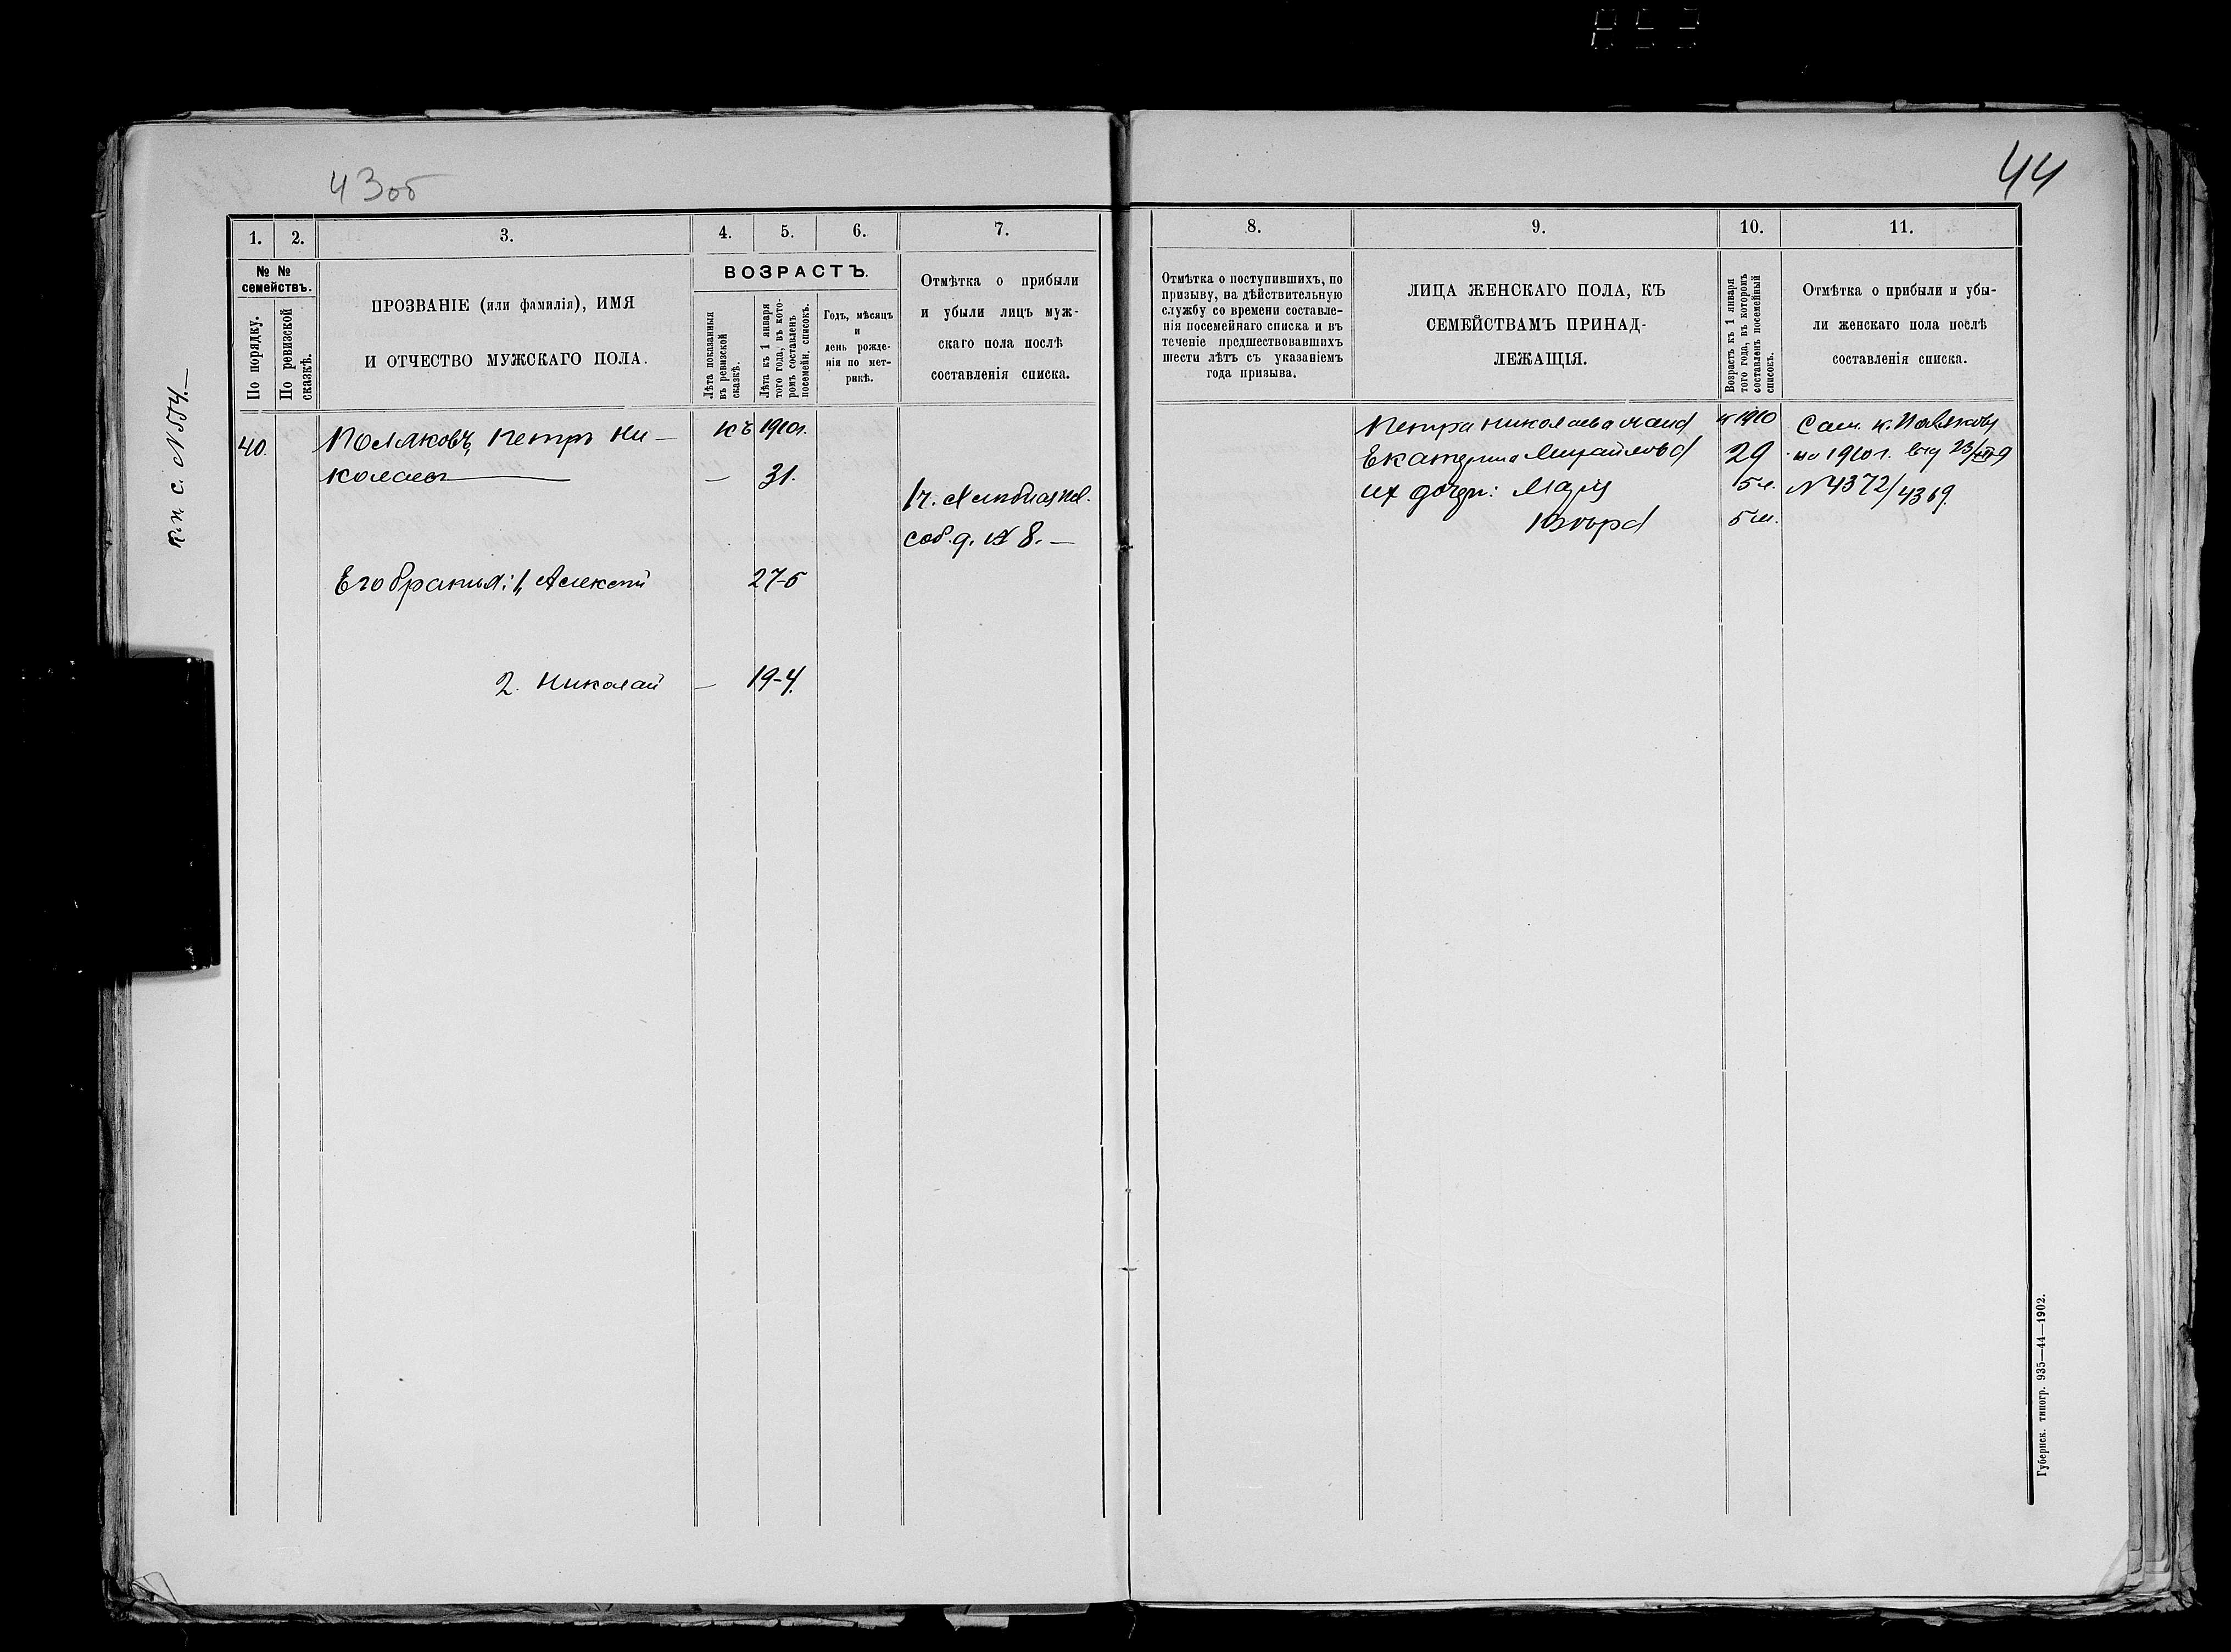 43об
44
1. 2. 3. 4. 5. 6. 7.
№ № семействъ.
По порядку.
По ревизской сказкѣ.
ПРОЗВАНІЕ (или фамилія), ИМЯ
И ОТЧЕСТВО МУЖСКАГО ПОЛА.
ВОЗРАСТЪ.
Лѣта показанныя
въ ревизской
сказкѣ.
Лѣта къ 1 января
того года, въ кото-
ромъ составленъ
посемейн. списокъ.
Годъ, мѣсяцъ
и
день рожде-
нія по мет-
рикѣ.
Отмѣтка о прибыли
и убыли лицъ муж-
скаго пола послѣ
составленія списка.
к.п. с. №
40. Поляковъ, Петръ Ни-
къ 1910г.
колаевъ
— 31.
соб. д. № 8. —
Его братья: 1, Алексѣй 27-5
2. Николай — 19-4.
8. 9. 10. 11.
Отмѣтка о поступившихъ, по
призыву, на дѣйствительную
службу со времени составле-
нія посемейнаго списка и въ
теченіе предшествовавшихъ
шести лѣтъ съ указаніемъ
года призыва.
ЛИЦА ЖЕНСКАГО ПОЛА, КЪ
СЕМЕЙСТВАМЪ ПРИНАД-
ЛЕЖАЩІЯ.
Возрастъ къ 1 января
того года, въ которомъ
составленъ посемейный
списокъ.
Отмѣтка о прибыли и убы-
ли женскаго пола послѣ
составленія списка.
Петра Николаева жена к 1910
Екатерина Михайлова 29 1910г. 23/XII 9
их дочери: 5 м. № 4372/4369
5 м.
Губернск. типогр. 935—44—1902.